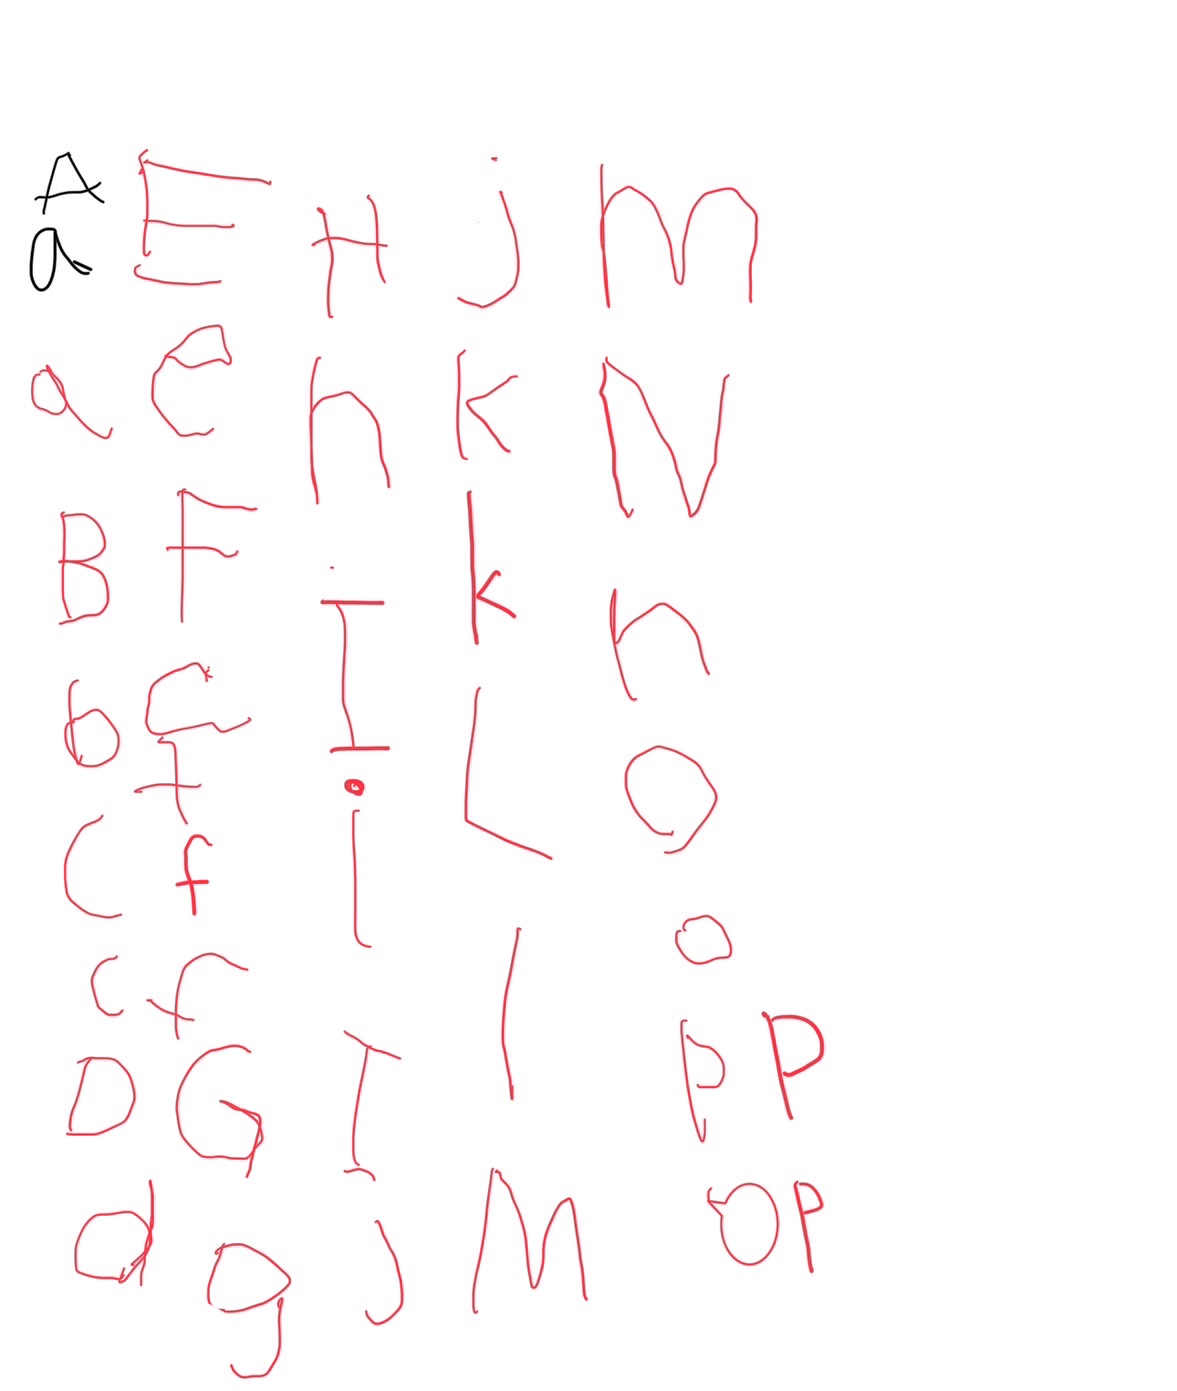 A
a
a
B
b
C
c
D
d
E
e
F
f
f
f
G
g
H
h
I
i
I
j
j
K
k
L
l
M
m
N
n
O
o
P P
P